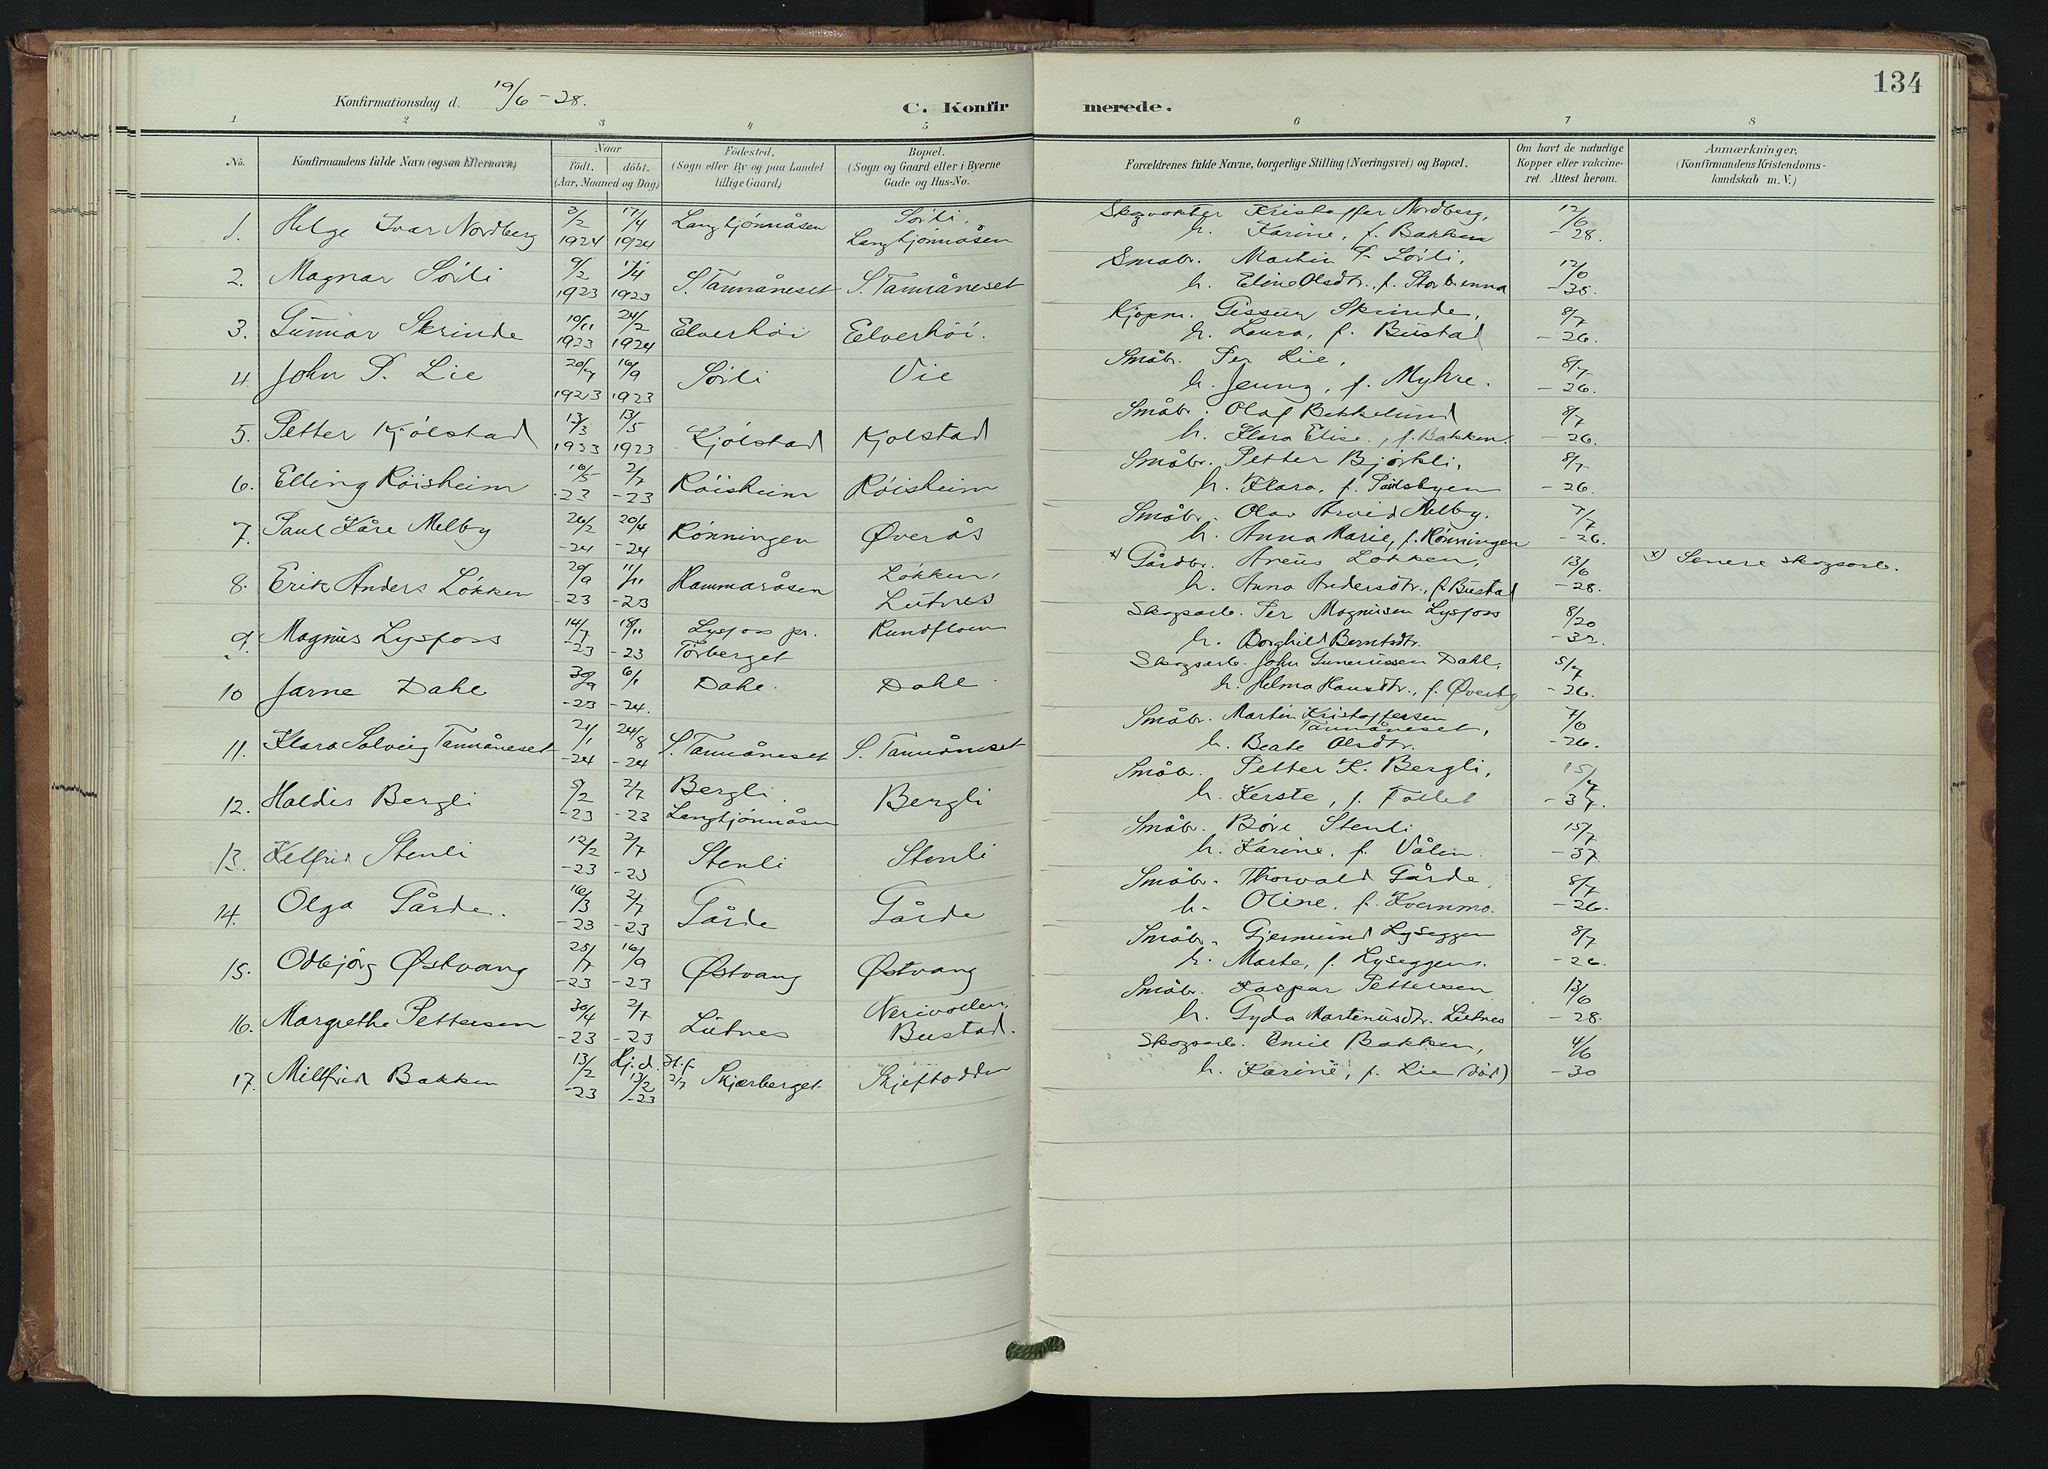 134
Konfirmationsdag d. 19/6 - 38.
C. Konfirmerede.
1 2 3 4 5 6 7 8
No. Konfirmandens fulde Navn (ogsaa Efternavn) Naar født. døbt. (Aar, Maaned og Dag) Fødested. (Sogn eller By og paa Landet tillige Gaard) Bopæl. (Sogn og Gaard eller i Byerne Gade og Hus-No. Forældrenes fulde Navne, borgerlige Stilling (Næringsvei) og Bopæl. Om havt de naturlige Kopper eller vaccineret. Attest herom. Anmærkninger. (Konfirmandens Kristendomskundskab m. V.)
1. Helge Ivar Nordberg 3/2 1924 17/4 1924 Langtjønnåsen Sørli, Langtjønnåsen Skogvokter Kristoffer Nordberg, h. Karine, f. Bakken 12/6 - 28.
2. Magnar Sørli 9/2 1923 1923 S. Tannåneset S. Tannåneset Småbr. Martin P. Sørli, h. Eline Olsdtr., f. Storbrenna 12/6 - 38
3. Gunnar Skrinde 10/11 1923 24/2 1924 Elverhöi Elverhöi. Kjøpm. Gissur Skrinde, h. Laura, f. Bustad 8/7 - 26.
4. John P. Lie 20/7 1923 16/9 1923 Sørli Vie Småbr. Per Lie, h. Jenny, f. Myhre. 8/7 - 26.
5. Petter Kjølstad 13/3 1923 13/5 1923 Kjølstad Kjolstad Småbr. Olaf Bekkelund h. Klara Elise, f. Bakken. 8/7 - 26.
6. Elling Röisheim 16/5 -23 2/7 -23 Röisheim Röisheim Småbr. Petter Bjørkli, h. Klara, f. 8/7 - 26.
7. Paul Kåre Melby 26/2 -24 20/4 -24 Rønningen Øverås Småbr. Olav Arvid Melby. h. Anna Marie, f. Rønningen 7/7 - 26.
8. Erik Anders Løkken 20/9 -23 11/11 -23 Hammaråsen Løkken, Lutnes x) Gårdbr. Løkken, h. Anna Andersdtr., f. Bustad 13/6 - 28. x) Senere skogsarb.
9. Magnus Lysfoss 14/7 -23 18/11 -23 Lysfoss pr. Tørberget Rundfloen Skogsarb. Per Magnusen Lysfoss h. Borghild Berntsdtr. 8/20 - 32.
10 Jarne Dahl 30/9 -23 6/1 -24. Dahl. Dahl. Skogsarb. John Gunerussen Dahl, h. Helma Hansdtr., f. Øverby 5/7 - 26.
11. Klara Solveig Tannåneset 21/1 -24 24/8 -24 S. Tannåneset S. Tannåneset Småbr. Martin Kristoffersen Tannåneset, h. Beate Olsdtr. - 26.
12. Haldis Bergli 5/2 -23 2/7 -23 Bergli Langtjønnåsen Bergli Småbr. Petter K. Bergli, h. Kerste, f. 15/7 - 37.
13. Stenli 12/2 -23 2/7 -23 Stenli Stenli Småbr. Böre Stenli h. Karine, f. Vålen. 15/7 - 37
14. Olga Gårde. 16/3 -23 2/7 -23 Gårde Gårde Småbr. Thorvald Gårde, h. Oline, f. Kvernmo. 8/7 - 26.
15. Odbjörg Østvang 25/7 -23 16/9 -23 Østvang Østvang Småbr. Gjermund Lyseggen h. Marte, f. Lyseggen. 8/7 - 26.
16. Margrethe Pettersen 30/4 -23 2/7 -23 Lutnes Nerivollen, Bustad. Småbr. Kaspar Pettersen h. Gyda Martinusdtr. Lutnes 13/6 - 28.
17. Millfrid Bakken 13/2 -23 Hj.d. 13/2 -23 St.f. 2/7 Skjærberget Skjeftodden Skogsarb. Emil Bakken, h. Karine, f. Lie (död) 4/6 - 30